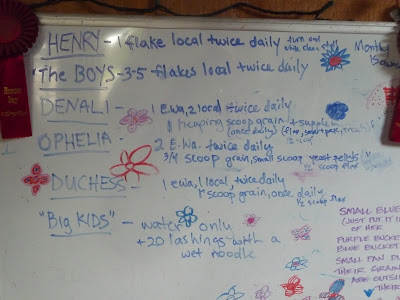 HENRY - 1 flake local twice daily turn out
while clean stall
Monthly
"The BOYS - 3-5 flakes local twice daily
DENALI - 1 E.Wa, 2 local twice daily
1 heaping scoop grain + supplem
(once daily)
OPHELIA - 2 E. Wa. twice daily
3/4 scoop grain, small scoop yeast pellets
1/2 scoop flax
DUCHESS - 1 ewa, 1 local, twice daily
scoop grain, once daily
1/2 scoop flax
"BIG KIDS" - water only
+20 lashings with a
wet noodle
SMALL BLUE
(JUST PUT IT I
OF HER
PURPLE BUCKE
BLUE BUCKET
SMALL PAN DU
THEIR GRAIN
ARE OUTSID
THEIR